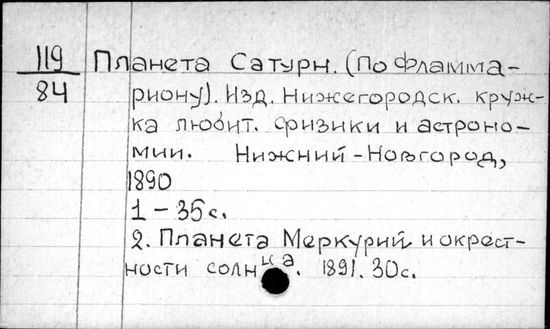 119 Планета Сатурн. (По Фламма-
84 риону). Изд. Нижегородск. круж-
ка любит. физики и астроно-
мии. Нижний-Новгород,
1890
1 – 35 с.
2. Планета Меркурий и окрест-
ности солнца. 1891. 30 с.